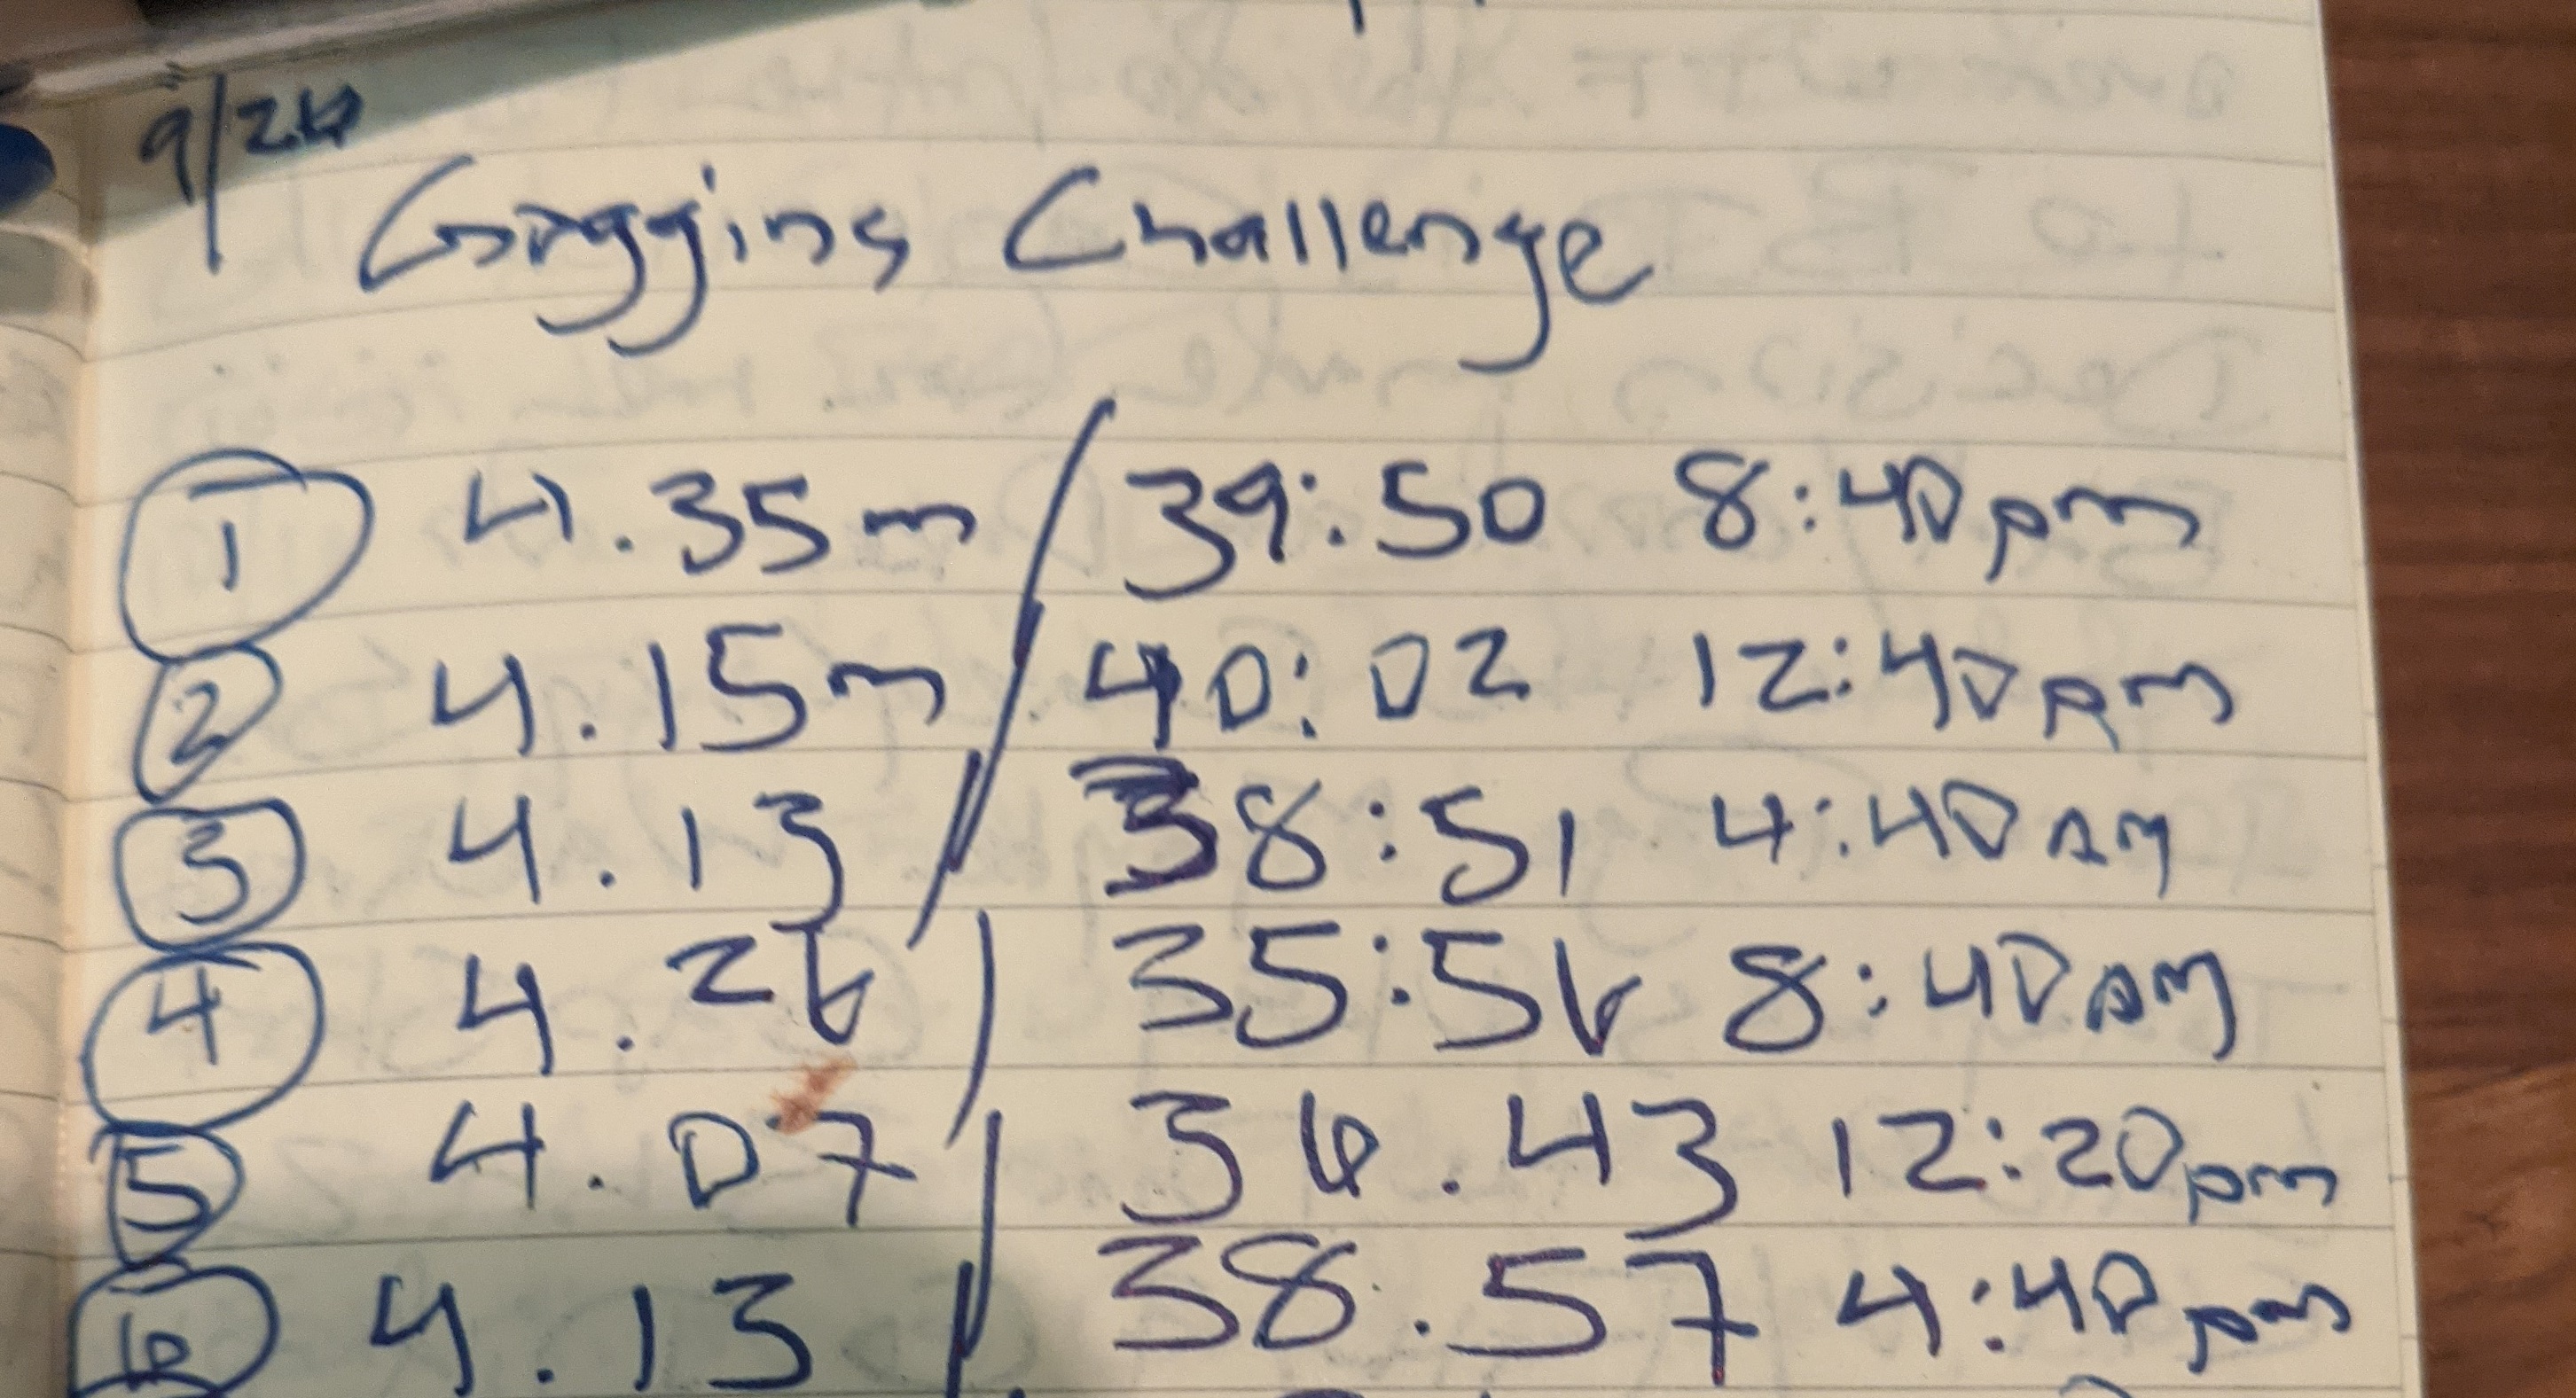 9/26
Goggins Challenge
1 4.35m / 39:50 8:40pm
2 4.15m / 40:02 12:40am
3 4.13 / 38:51 4:40am
4 4.26 / 35:56 8:40am
5 4.07 / 36.43 12:20pm
6 4.13 / 38.57 4:40pm